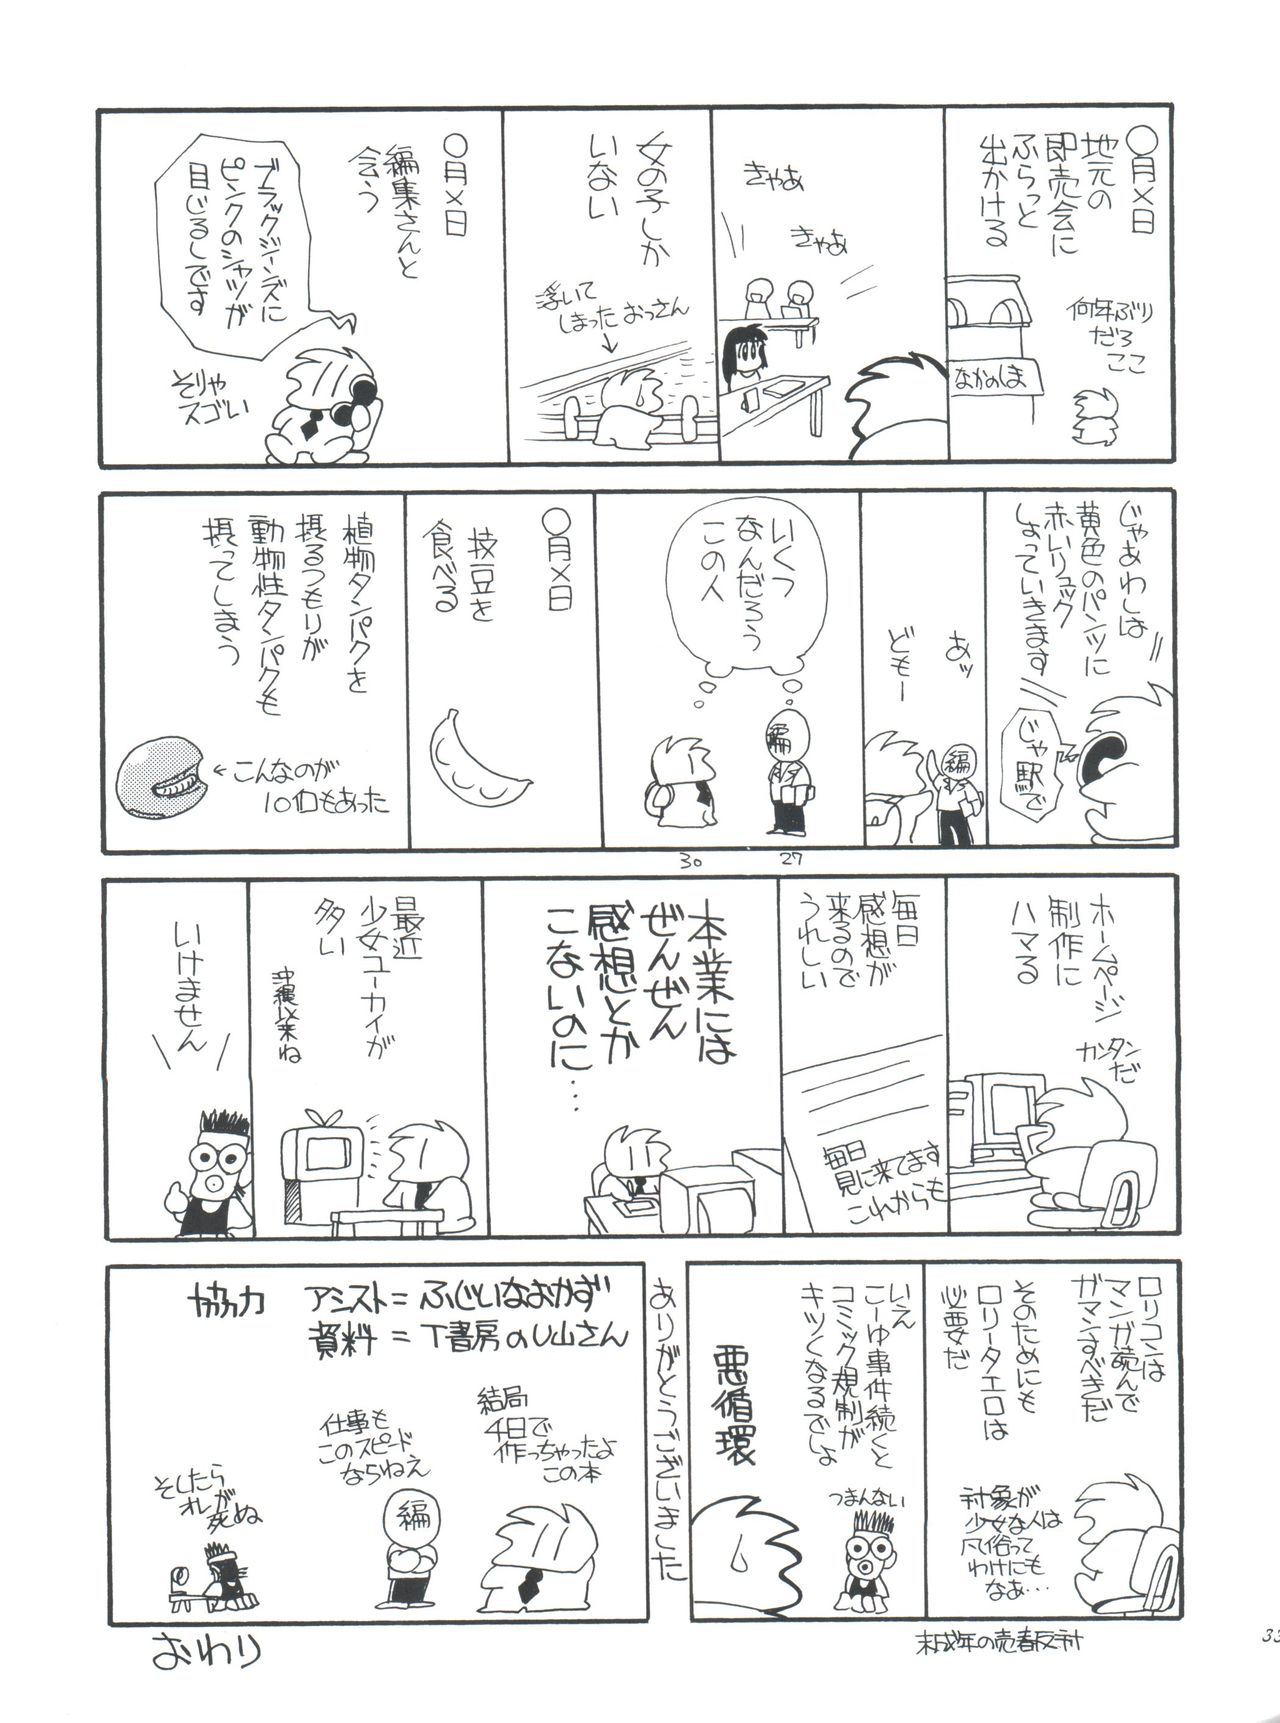 〇月×日
地元の
即売会に
ふらっと
出かける
何年ぶり
だろ
ここ
なかのしま
きゃあ
きゃあ
女の子しか
いない
浮いて
しまったおっさん
〇月×日
編集さんと
会う
ブラックジーンズに
ピンクのシャツが
目じるしです
そりゃ
スゴい
じゃあわしは
黄色のパンツに
赤いリュック
しょっていきます
じゃ駅で
あッ
どもー
編
いくつ
なんだろう
この人
編
27
30
〇月×日
枝豆を
食べる
植物タンパクを
摂るつもりが
動物性タンパクも
摂ってしまう
←こんなのが
10個もあった
ホームページ
制作に
ハマる
カンタン
だ
毎日
感想が
来るので
うれしい
毎日
見に来てます
これからも
本業には
ぜんぜん
感想とか
こないのに
…
最近
少女ユーカイが
多い
沖縄以来ね
いけません
ロリコンは
マンガ読んで
ガマンすべきだ
そのためにも
ロリータエロは
必要だ
対象が
少女な人は
風俗って
わけにも
なぁ…
いえ
こーゆ事件続くと
コミック規制が
キツくなるでしょ
つまんない
悪循環
未成年の売春反対
ありがとうございました
協力
アシスト=ふじいなおかず
資料=T書房のU山さん
結局
4日で
作っちゃったよ
この本
仕事も
このスピード
ならねえ
編
そしたら
オレが
死ぬ
おわり
33